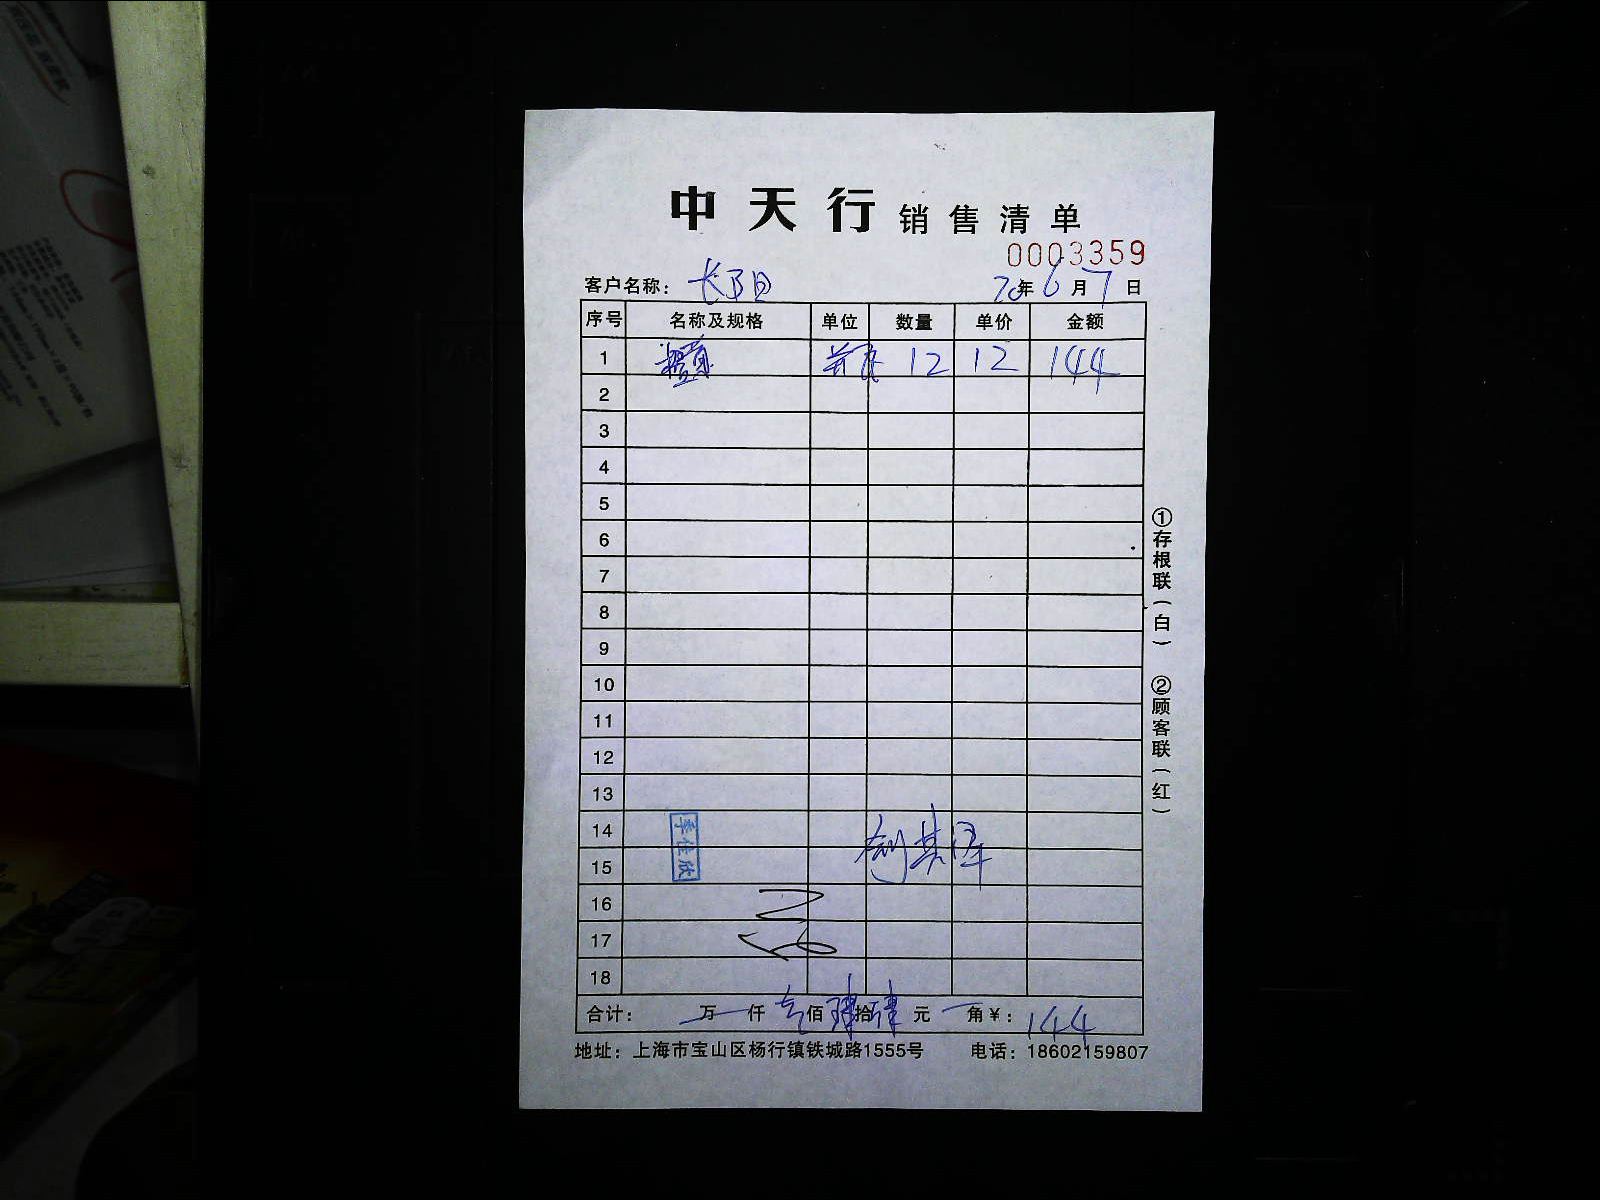 中天行 销售清单
0003359
客户名称：长阳 20年6月7日
序号 名称及规格 单位 数量 单价 金额
1 12 12 144
2
3
4
5
6
7
8
9
10
11
12
13
14
15
16
17
18
季佳欣
合计： 万 仟 壹佰肆拾肆元 角￥：144
地址：上海市宝山区杨行镇铁城路1555号 电话：18602159807
①存根联（白） ②顾客联（红）